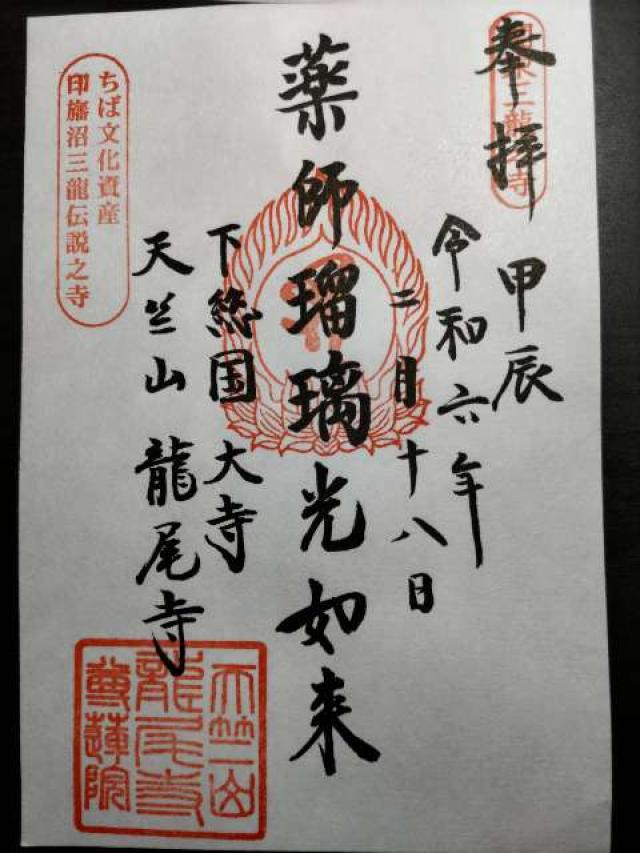 奉拝
甲辰
令和六年
二月十八日
薬師瑠璃光如来
下総国大寺
天竺山龍尾寺
ちば文化資産
印旛沼三龍伝説之寺
天竺山
龍尾寺
尊蓮院